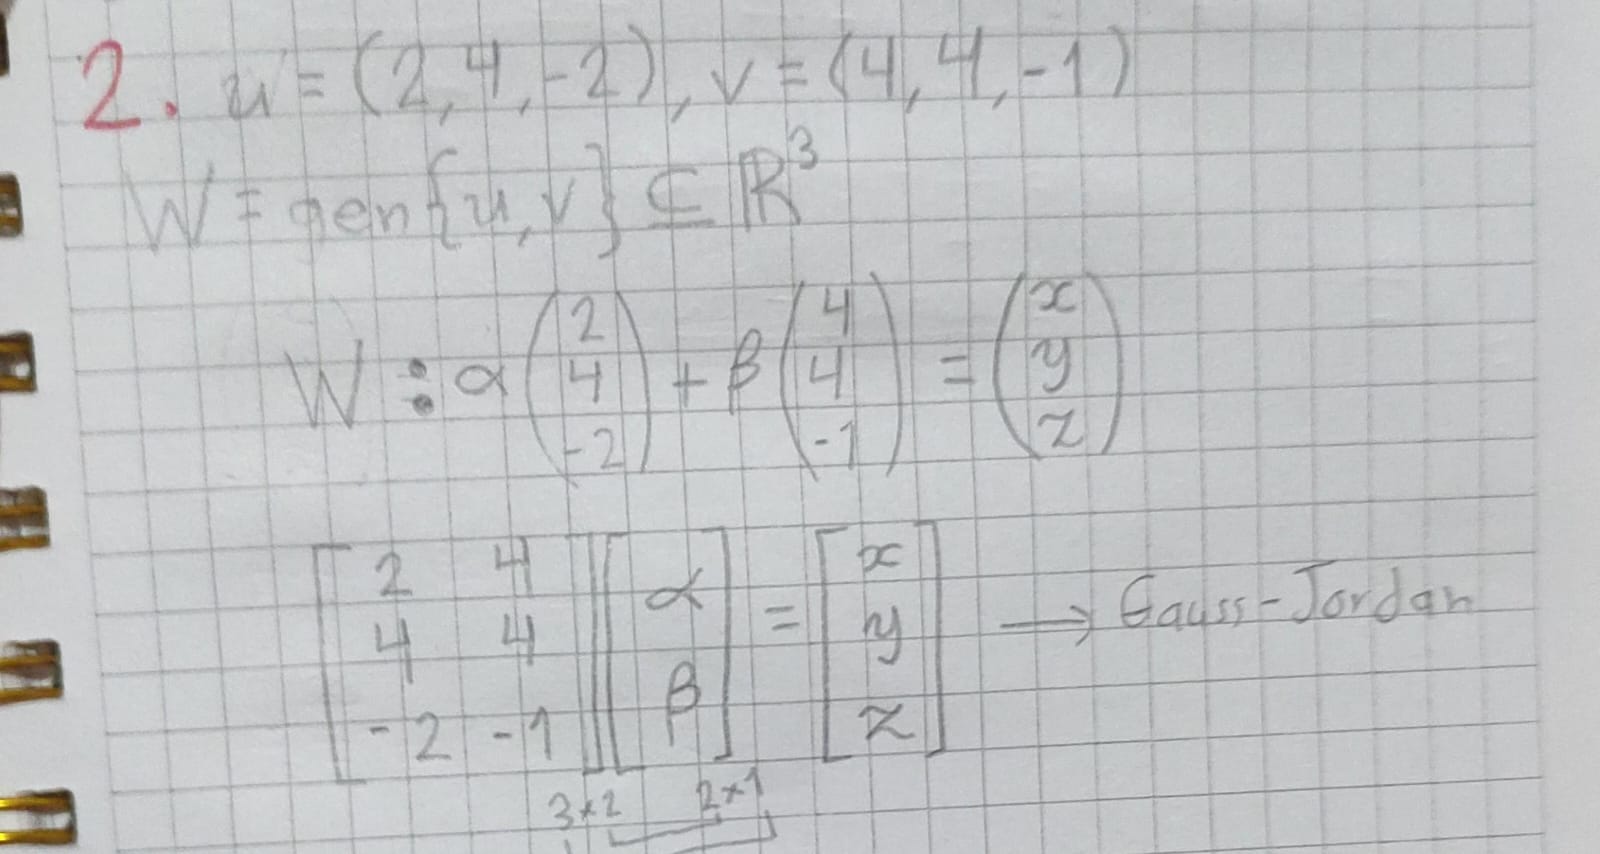 2. u = (2, 4, -2), v = (4, 4, -1)
W = gen{u, v} ⊆ ℝ³
W : α(2 4 -2) + β(4 4 -1) = (x y z)
[2 4
4 4
-2 -1] [α β] = [x y z] → Gauss-Jordan
3×2 2×1